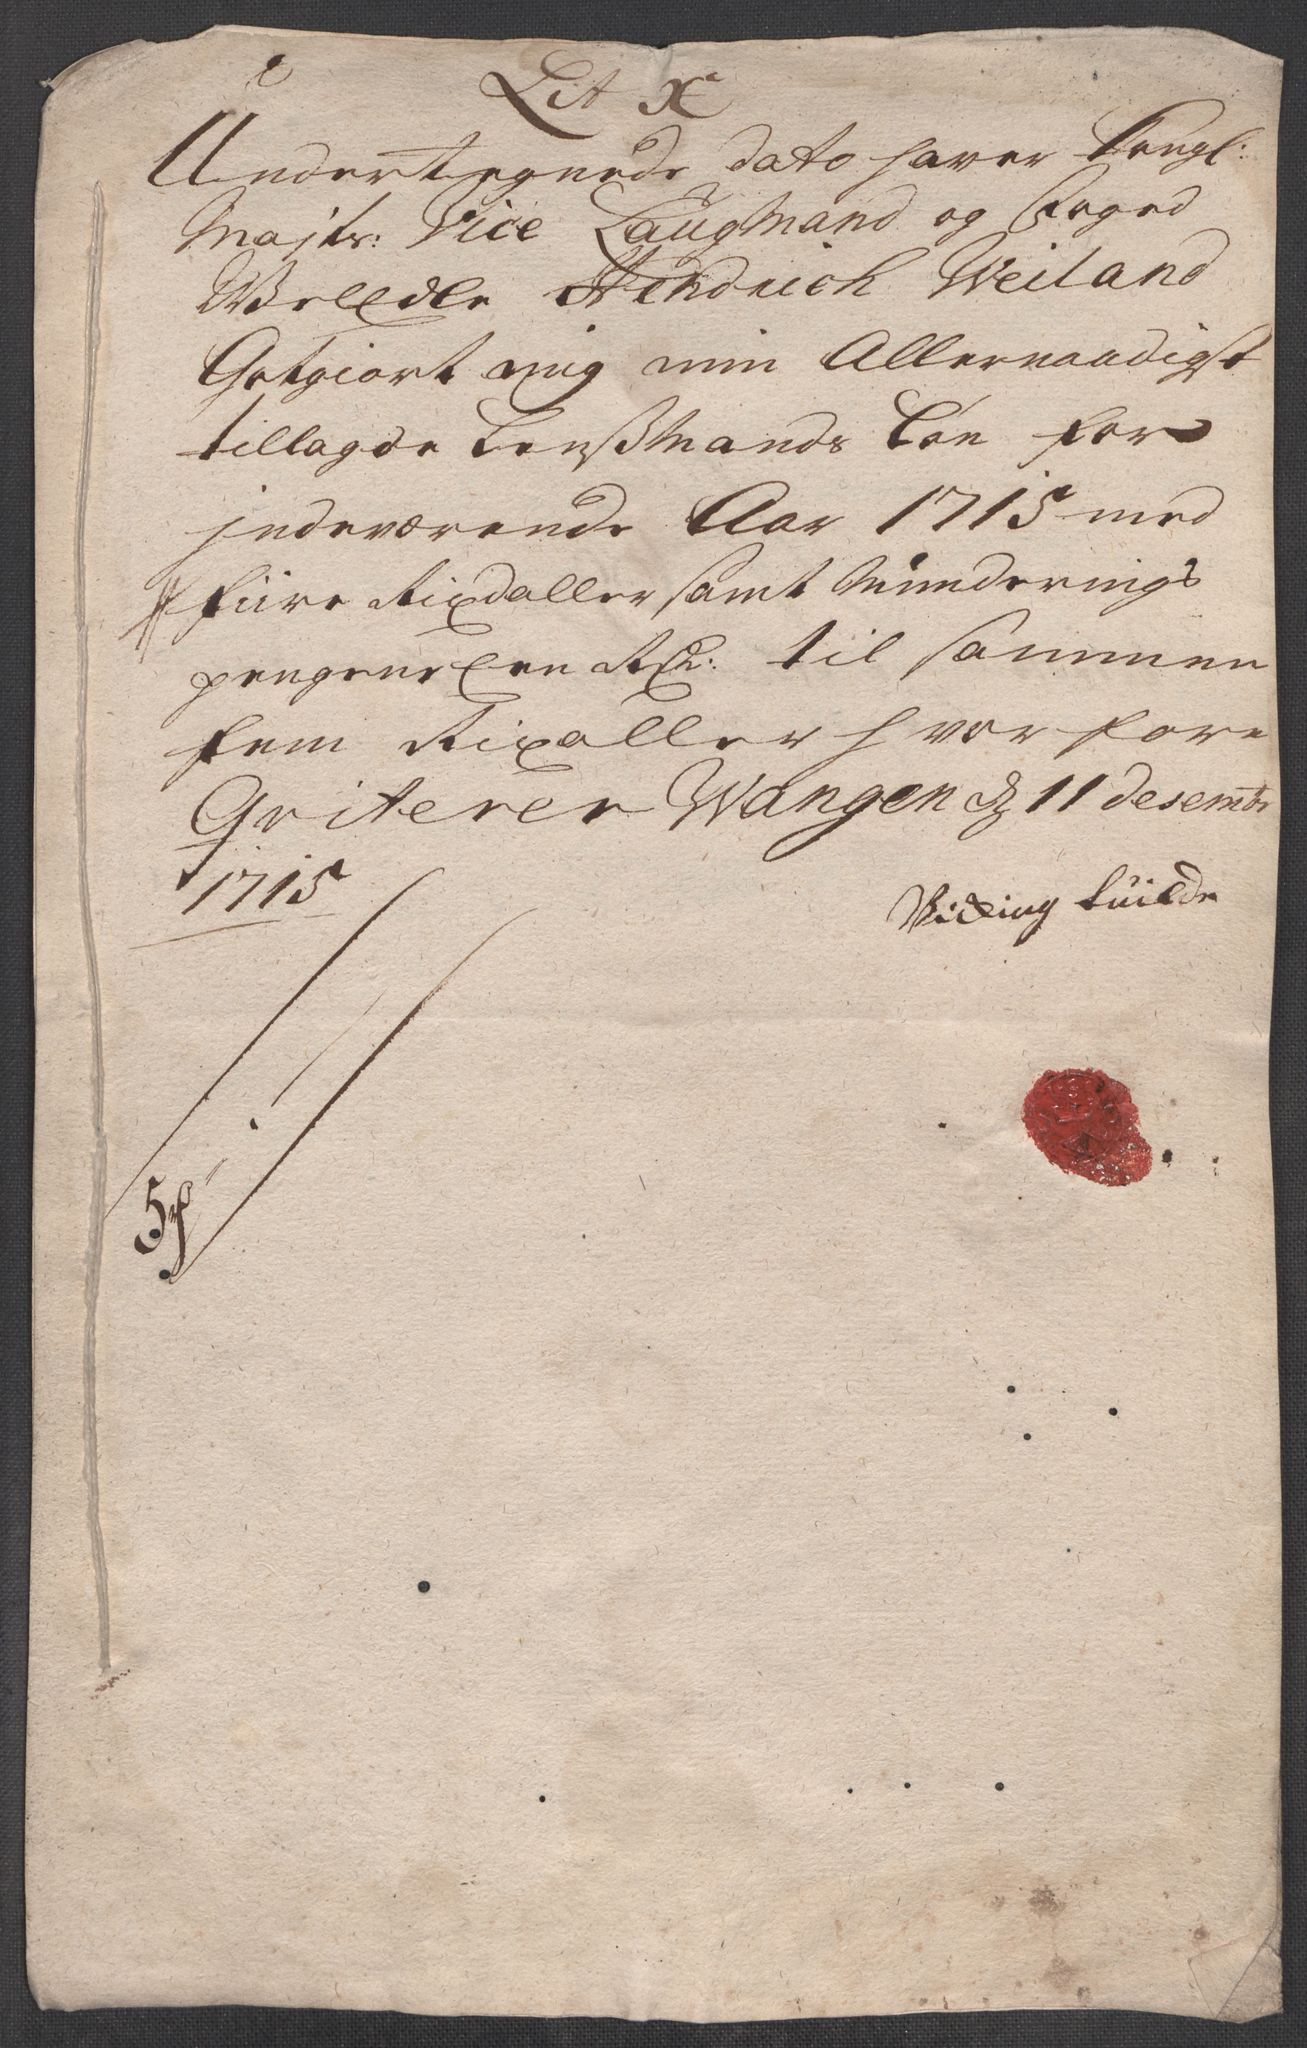 Lit X
Undertegnede dato haver Kongl:
Majts: Vice Laugmand og Foged
WelEdle Hendrich Weiland
Gotgiort mig min Allernaadigst
tillagde Lensmands Løn for
indeværende Aar 1715 med
fiire Rixdaller samt Munderings
pengene Een Rdr: til sammen
fem Rixdaller hvorfore
Qviterer Wangen d 11 desembr
1715
Viking Luilde
5